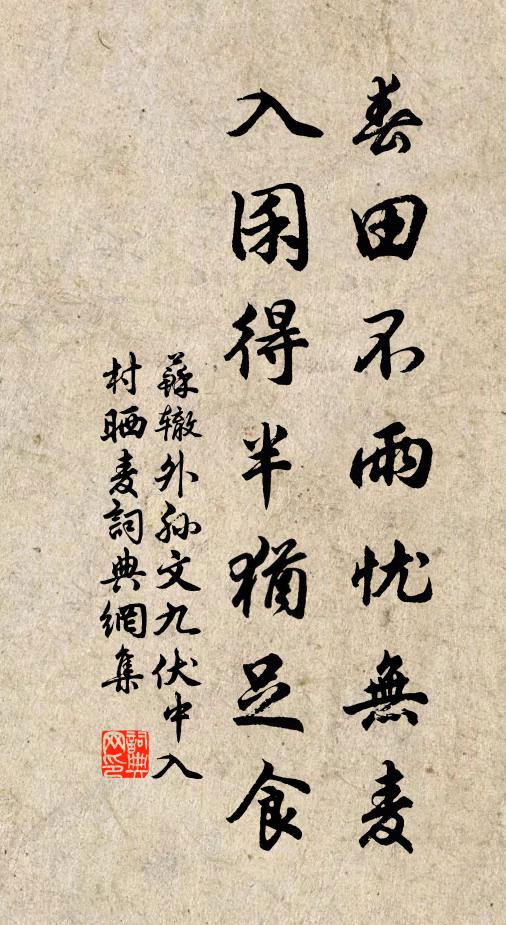 春田不雨忧無麦
入囷得半猶足食
蘇辙外孙文九伏中入
村晒麦詞典網集
詞典网印